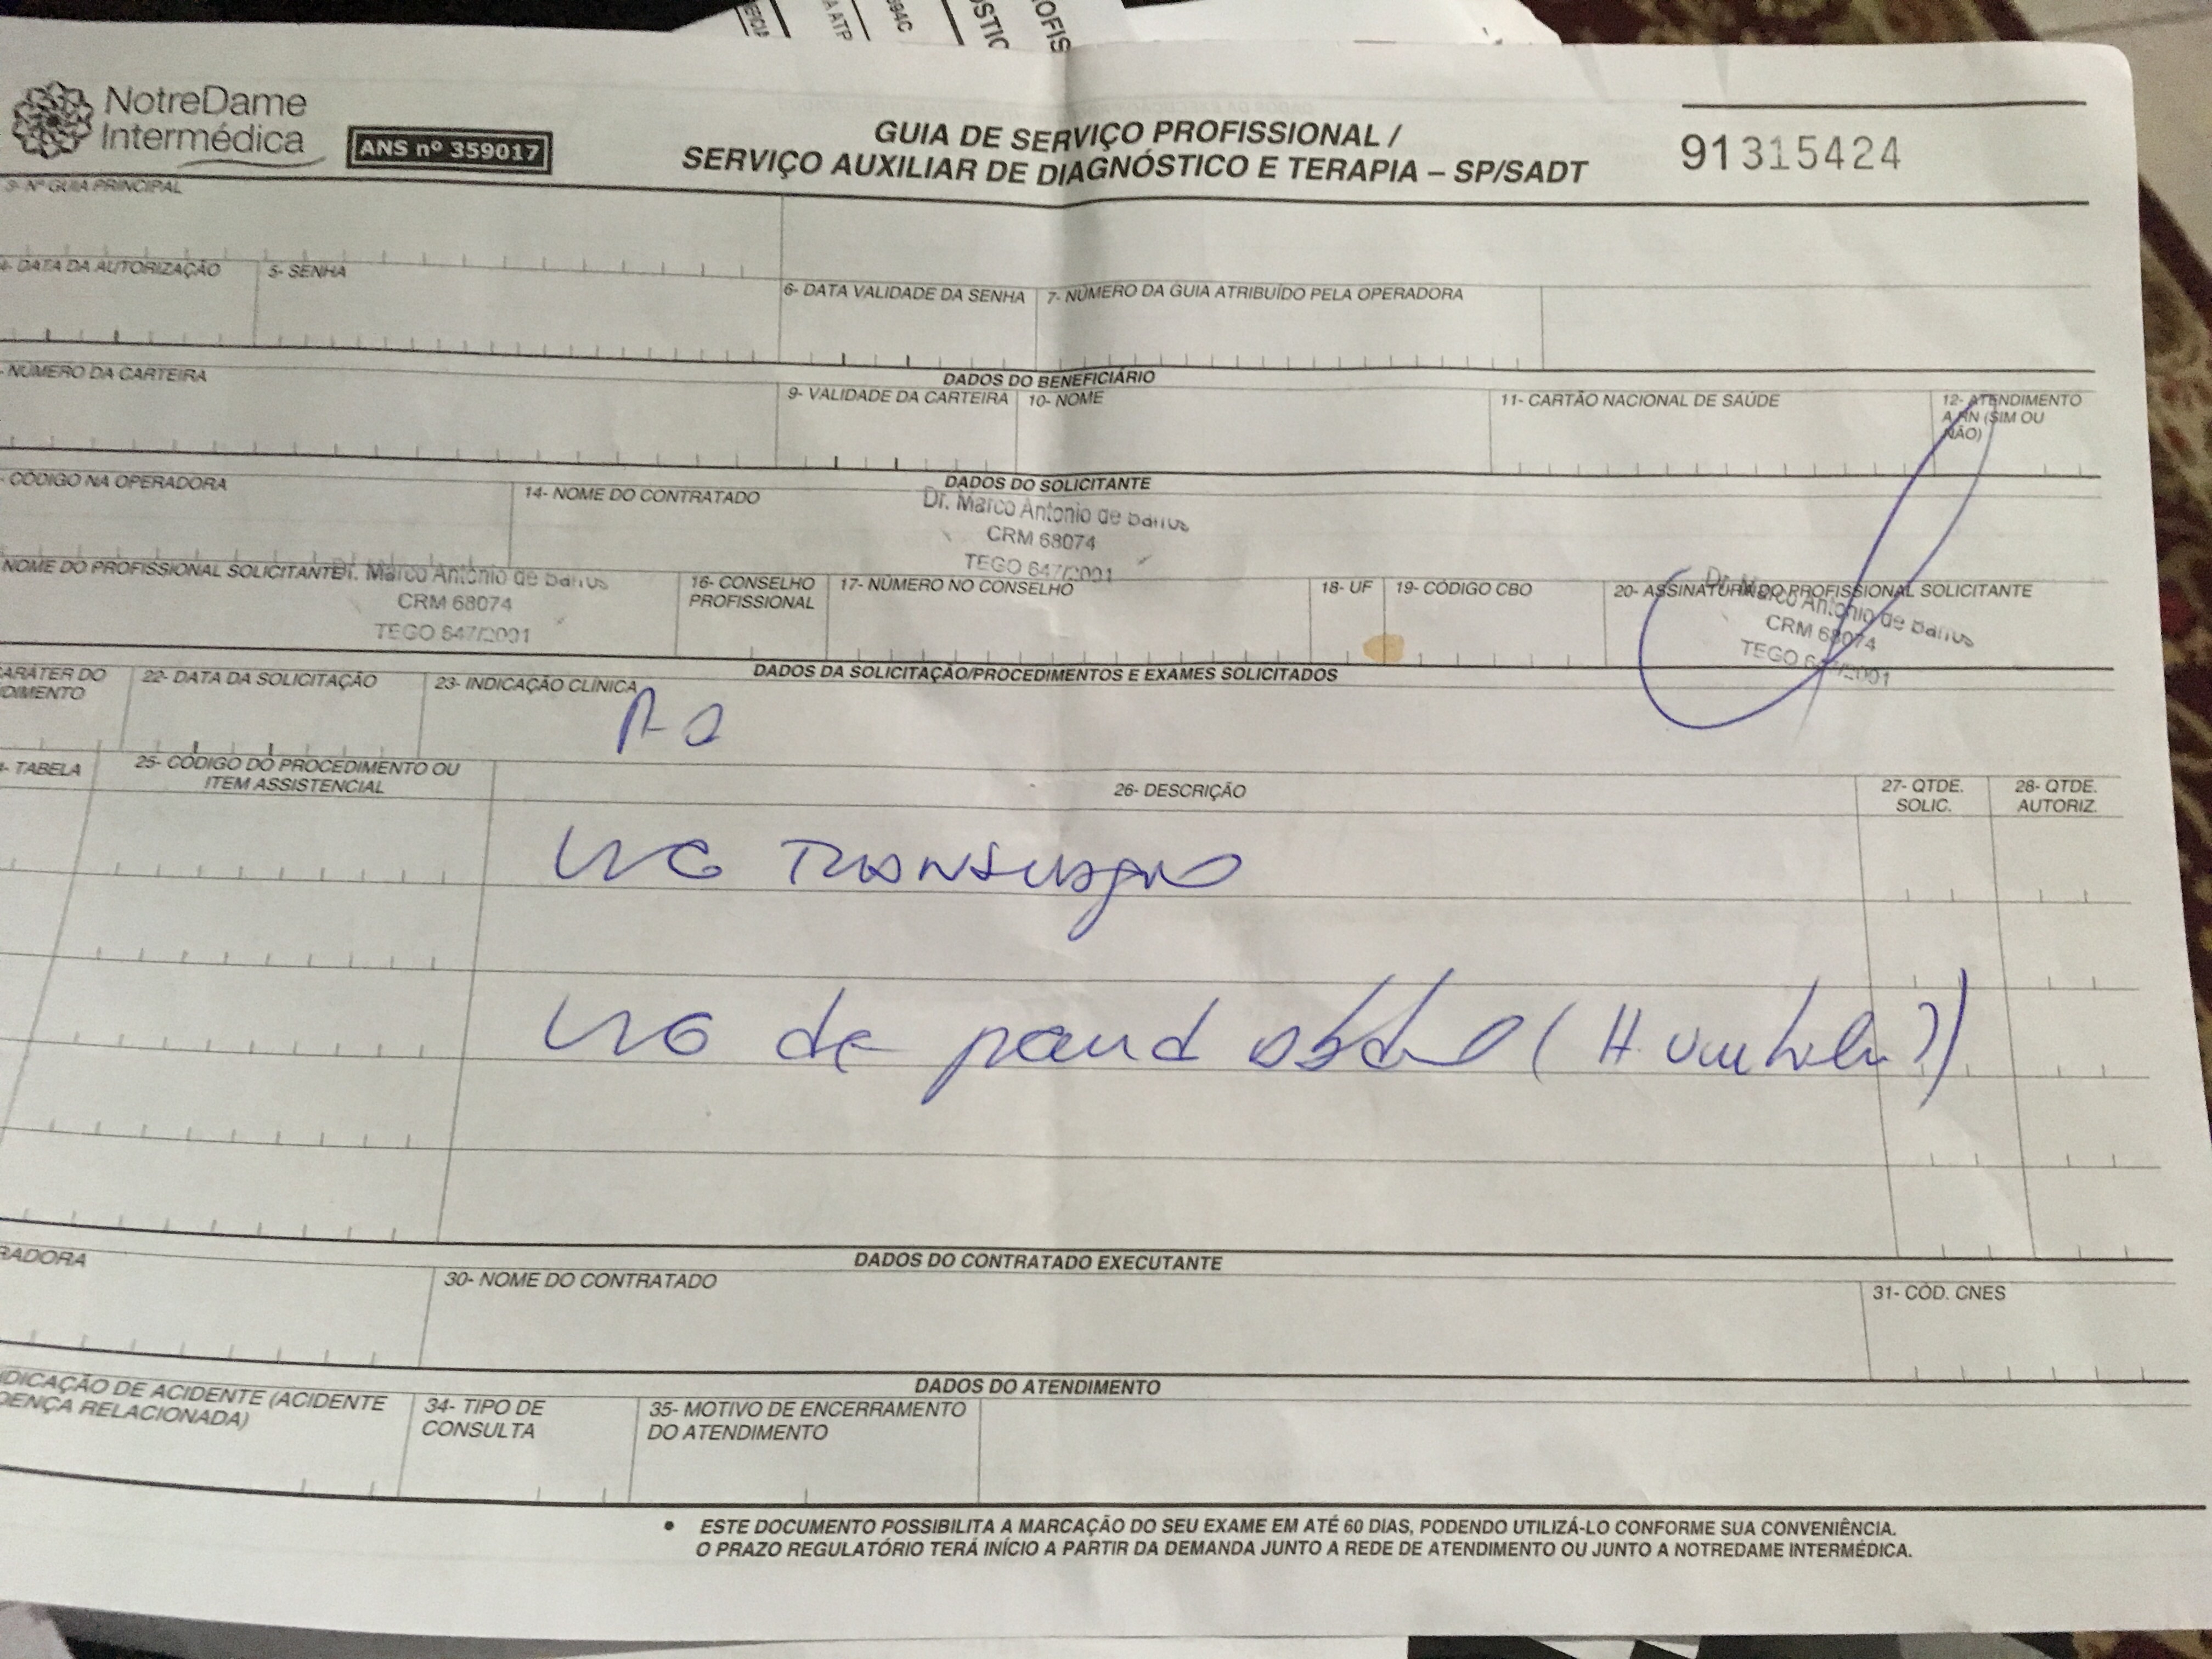 EFICIA
A ATP
394C
OSTIC
ROFIS
NotreDame
Intermédica
ANS nº 359017
GUIA DE SERVIÇO PROFISSIONAL /
SERVIÇO AUXILIAR DE DIAGNÓSTICO E TERAPIA – SP/SADT
91315424
3- Nº GUIA PRINCIPAL
4- DATA DA AUTORIZAÇÃO 5- SENHA
6- DATA VALIDADE DA SENHA 7- NÚMERO DA GUIA ATRIBUÍDO PELA OPERADORA
DADOS DO BENEFICIÁRIO
- NÚMERO DA CARTEIRA 9- VALIDADE DA CARTEIRA 10- NOME 11- CARTÃO NACIONAL DE SAÚDE 12- ATENDIMENTO
A RN (SIM OU
NÃO)
DADOS DO SOLICITANTE
- CÓDIGO NA OPERADORA 14- NOME DO CONTRATADO
Dr. Marco Antonio de Barros
CRM 68074
TEGO 647/2001
NOME DO PROFISSIONAL SOLICITANTE 16- CONSELHO
PROFISSIONAL 17- NÚMERO NO CONSELHO 18- UF 19- CÓDIGO CBO 20- ASSINATURA DO PROFISSIONAL SOLICITANTE
Dr. Marco Antonio de Barros
CRM 68074
TEGO 647/2001
Dr. Marco Antonio de Barros
CRM 68074
TEGO 647/2001
DADOS DA SOLICITAÇÃO/PROCEDIMENTOS E EXAMES SOLICITADOS
CARÁTER DO
NDIMENTO 22- DATA DA SOLICITAÇÃO 23- INDICAÇÃO CLÍNICA
- TABELA 25- CÓDIGO DO PROCEDIMENTO OU
ITEM ASSISTENCIAL 26- DESCRIÇÃO 27- QTDE.
SOLIC. 28- QTDE.
AUTORIZ.
de
DADOS DO CONTRATADO EXECUTANTE
RADORA 30- NOME DO CONTRATADO 31- CÓD. CNES
DADOS DO ATENDIMENTO
NDICAÇÃO DE ACIDENTE (ACIDENTE
OENÇA RELACIONADA) 34- TIPO DE
CONSULTA 35- MOTIVO DE ENCERRAMENTO
DO ATENDIMENTO
• ESTE DOCUMENTO POSSIBILITA A MARCAÇÃO DO SEU EXAME EM ATÉ 60 DIAS, PODENDO UTILIZÁ-LO CONFORME SUA CONVENIÊNCIA.
O PRAZO REGULATÓRIO TERÁ INÍCIO A PARTIR DA DEMANDA JUNTO A REDE DE ATENDIMENTO OU JUNTO A NOTREDAME INTERMÉDICA.